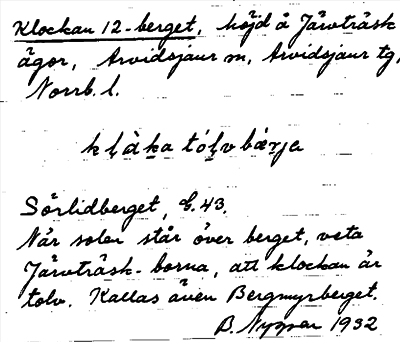 Klockan 12-berget, höjd å Järvträsk
ägor, Arvidsjaur sn, Arvidsjaur tg,
Norrb. l.
klàka tólv bærja
Sörlidberget, E.43.
När solen står över berget, veta
Järvträsk-borna, att klockan är
tolv. Kallas även Bergmyrberget.
B. Nyman 1932